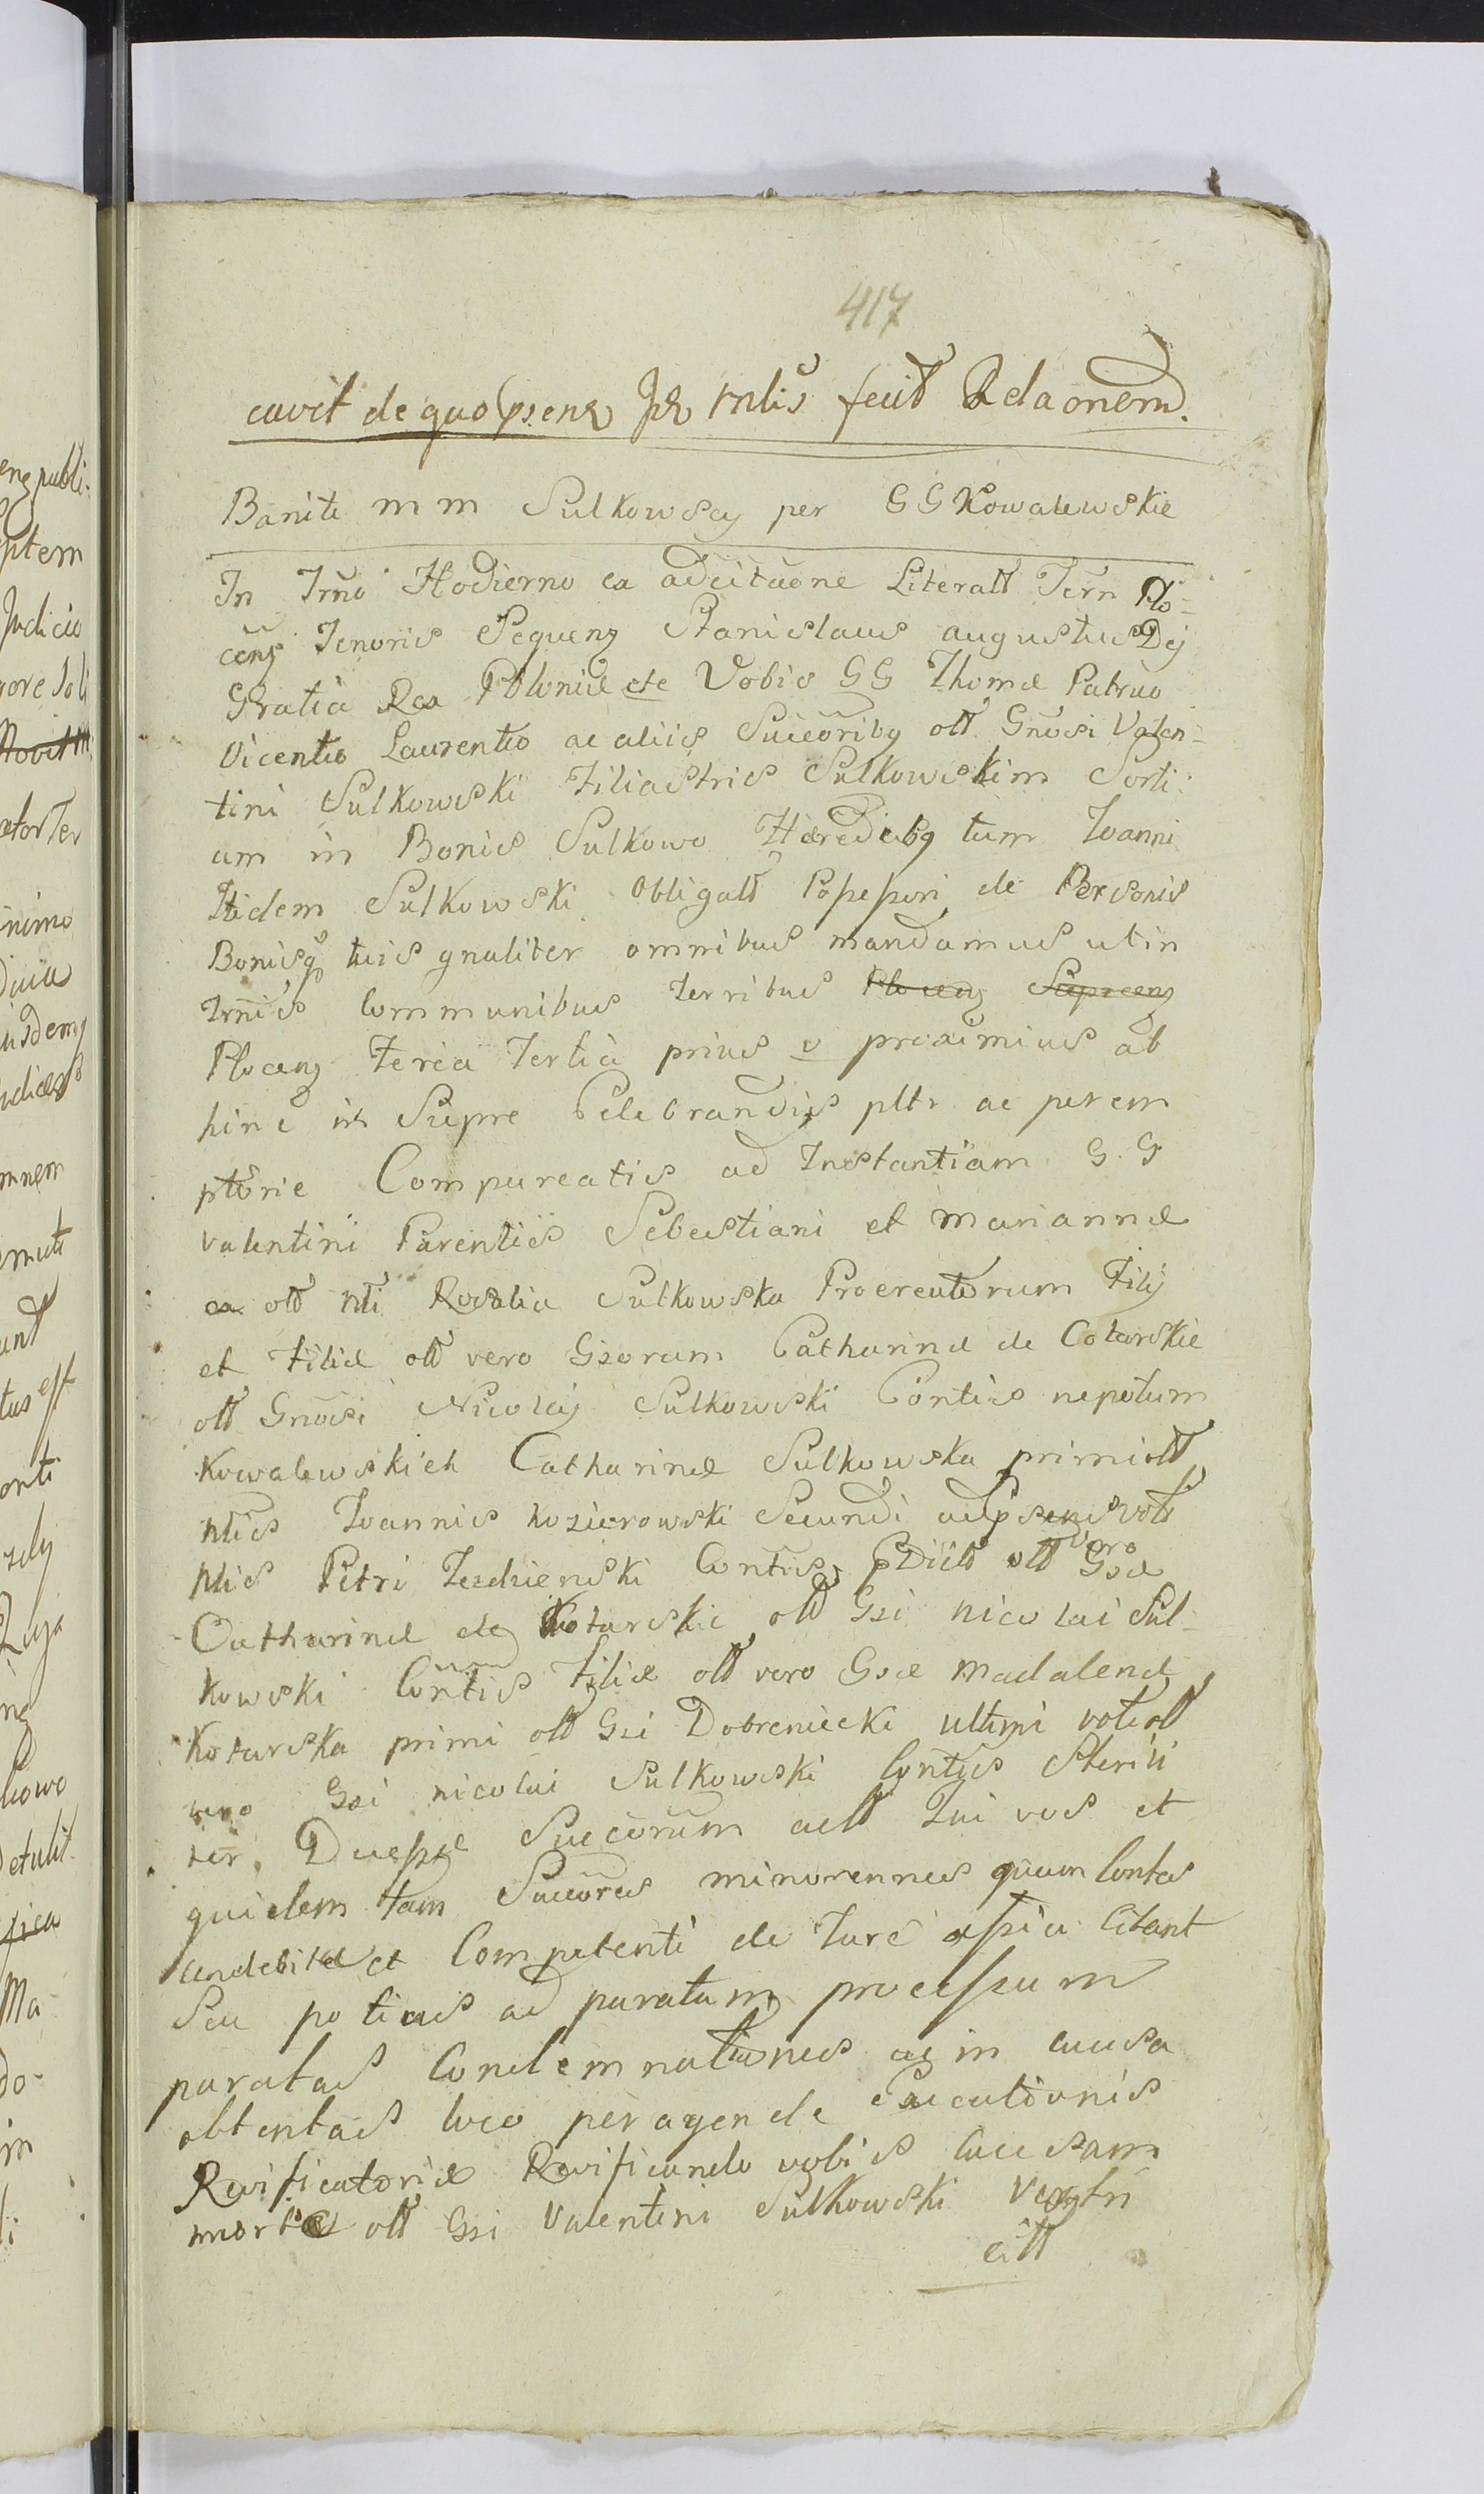 417
cavit de quo psens Jud mlis fecit Relaonem.
Baniti M M Sulkowscy per G G Kowalewskie
In Trno Hodierno ex adcitaone Literali Term Plo-
cens Tenoris Sequens Stanislaus augustus Dej
Gratia Rex Poloniæ etc Vobis G G Thomæ Patruo
Vicentio Laurentio ac aliis Succoribg olt Gnosi Valen-
tini Sulkowski Filiastris Sulkowskim Sorti-
um in Bonis Sulkowo Hæredibg tum Joanni
Itidem Sulkowski Obligatt Possessori de Personis
Bonisq tuis gnaliter omnibus mandamus ut in
Trnis Communibus Terribus Plocens Sieprcens
Plocens Feria Tertia prius v proximius ab
hinc in Siepre Celebrandis pltr ac perem
ptorie Compareatis ad Instantiam G. G
Valentini Parentis Sebastiani et Mariannæ
ex olt nli Rosalia Sulkowska Procreatorum Filij
et Filiæ olt vero Gsorum Catharinæ de Cotarskie
olt Gnosi Nicolaj Sulkowski Contis nepotum
Kowalewskich Catharinæ Sulkowska primi olt
nlis Joannis Kozierowski Secundi ad psens voti
nlis Petri Jezdzienski Contis pdict olt vero Gsæ
Catharinæ de Kotarskie olt Gsi nicolai Sul-
kowski Contis Filiæ olt vero Gsæ Madalenæ
Kotarska primi olt Gsi Dobreniecki ultimi voti olt
vero Gsi nicolai Sulkowski Contis Sterili
ter Succorum actt Qui vos et
quidem tam Succores minorennes quam Contes
andebitæ et Competenti de Jure assia Citant
Seu potius ad paratum processum
paratas Condemnationes ac in causa
obtentas loco peragende Executionis
Reificatoriæ Reificando vobis Causam
morte olt Gsi Valentini Sulkowski Vestri
citt